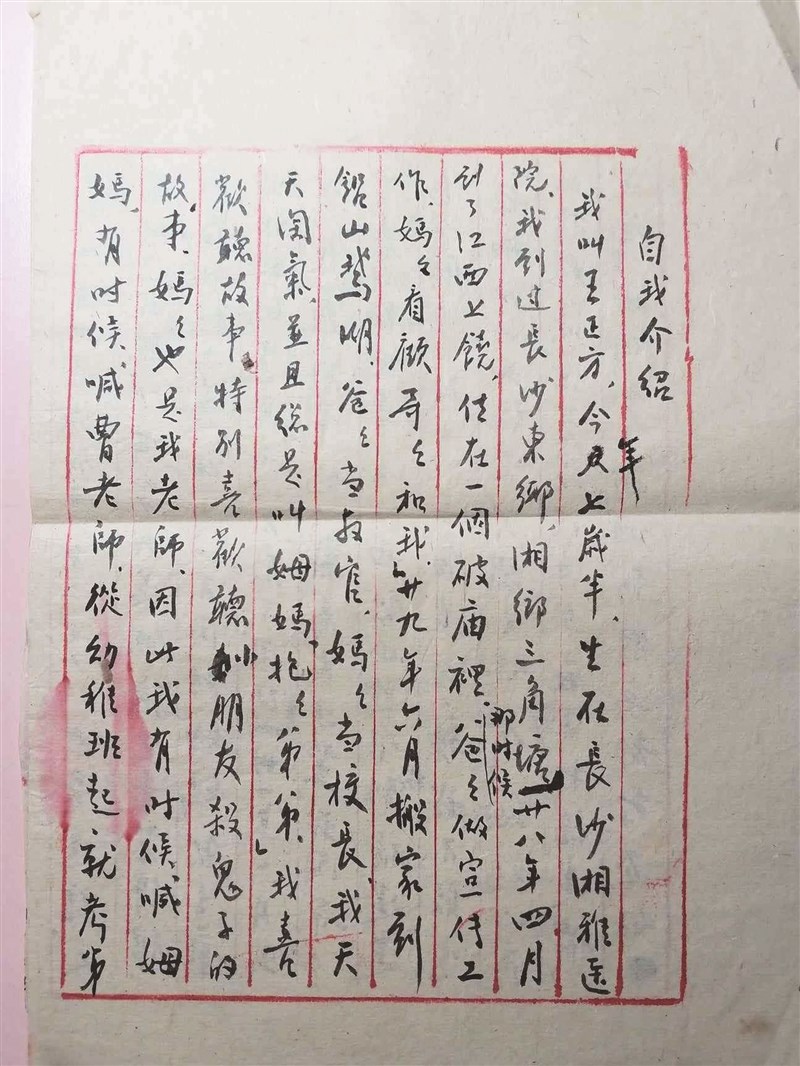 自我介绍
我叫王正方，今年七歲半，生在長沙湘雅医
院，我到过長沙東鄉，湘鄉三角塘，廿八年四月
到了江西上饒，住在一個破庙裡，那时候爸々做宣传工
作，媽々看顧哥々和我，廿九年六月搬家到
鉛山鵞湖，爸々当教官，媽々当校長，我天
天淘氣，並且總是叫姆媽「抱々弟弟」，我喜
歡聽故事，特別喜歡聽小朋友殺鬼子的
故事，媽々也是我老師，因此我有时候喊姆
媽，有时候喊曹老師，從幼稚班起就考第